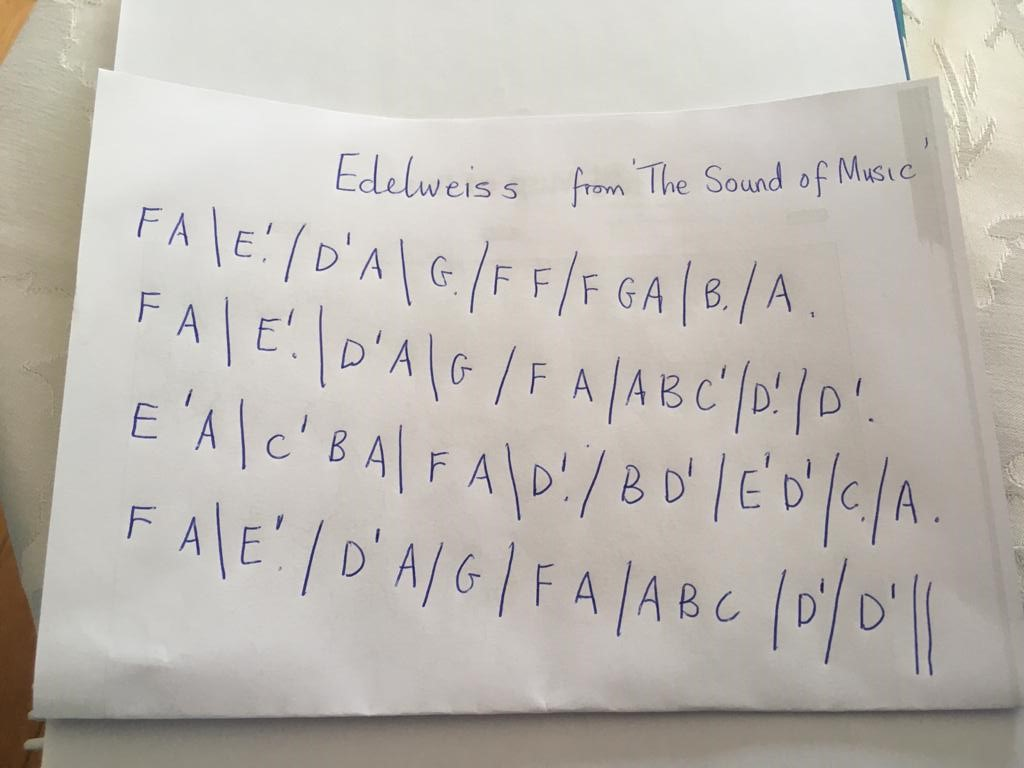 Edelweiss from 'The Sound of Music'
F A \ E'. / D' A \ G. / F F / F G A / B. / A .
F A / E'. / D' A \ G / F A / A B C' / D'. / D'.
E 'A / C' B A / F A \ D'. / B D' / E' D' / C. / A .
F A \ E'. / D' A / G / F A / A B C / D' / D' ||